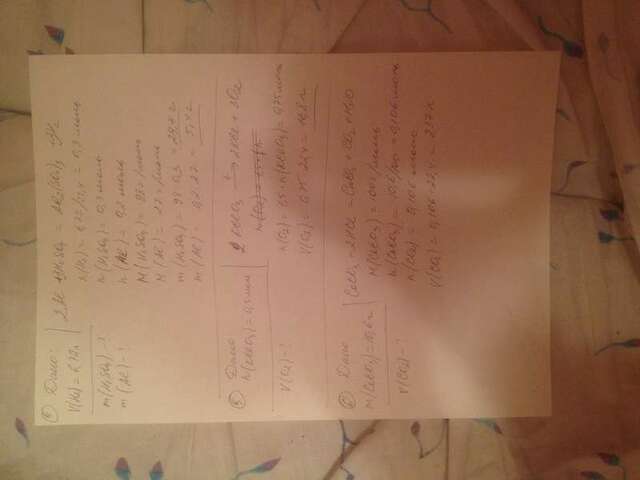 Дано:
V(H₂) = 6,72л
m(H₂SO₄) - ?
m(Al) - ?
2Al + 3H₂SO₄ = Al₂(SO₄)₃ + 3H₂
n(H₂) = 6,72/22,4 = 0,3 моль
n(H₂SO₄) = 0,3 моль
n(Al) = 0,2 моль
M(H₂SO₄) = 98 г/моль
M(Al) = 27 г/моль
m(H₂SO₄) = 98·0,3 = 29,4 г
m(Al) = 0,2·27 = 5,4 г
5 Дано
n(KClO₃) = 0,5 моль
V(O₂) - ?
2KClO₃ →t 2KCl + 3O₂
n(O₂) = 1,5·n(KClO₃) = 0,75 моль
V(O₂) = 0,75·22,4 = 16,8 л
Дано
m(CaCO₃) = 10,6 г
V(CO₂) - ?
CaCO₃ + 2HCl = CaCl₂ + CO₂ + H₂O
M(CaCO₃) = 100 г/моль
n(CaCO₃) = 10,6/100 = 0,106 моль
n(CO₂) = 0,106 моль
V(CO₂) = 0,106·22,4 = 2,37 л